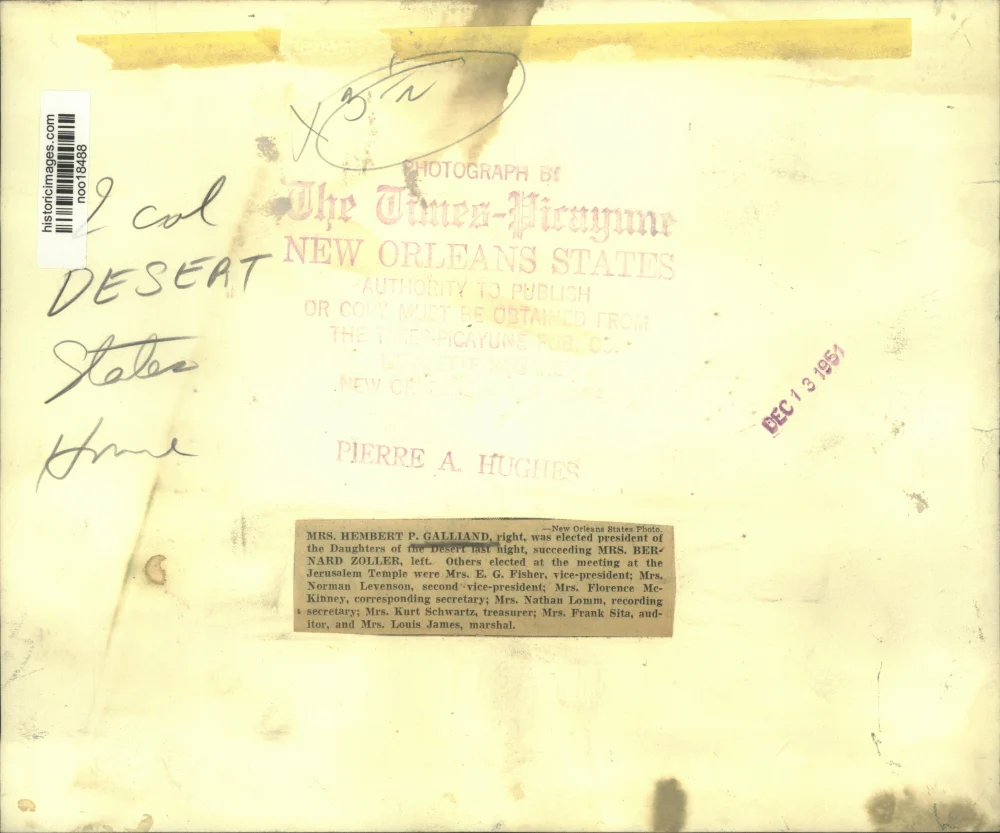 historicimages.com
noo18488
X 3 IN
2 col
DESERT
States
Home
PHOTOGRAPH BY
The Times-Picayune
NEW ORLEANS STATES
AUTHORITY TO PUBLISH
OR COPY MUST BE OBTAINED FROM
THE TIMES-PICAYUNE PUB. CO.
NEW
PIERRE A. HUGHES
DEC 13 1951
—New Orleans States Photo.
MRS. HEMBERT P. GALLIAND, right, was elected president of
the Daughters of the Desert last night, succeeding MRS. BER-
NARD ZOLLER, left. Others elected at the meeting at the
Jerusalem Temple were Mrs. E. G. Fisher, vice-president; Mrs.
Norman Levenson, second vice-president; Mrs. Florence Mc-
Kinney, corresponding secretary; Mrs. Nathan Lomm, recording
secretary; Mrs. Kurt Schwartz, treasurer; Mrs. Frank Sita, aud-
itor, and Mrs. Louis James, marshal.